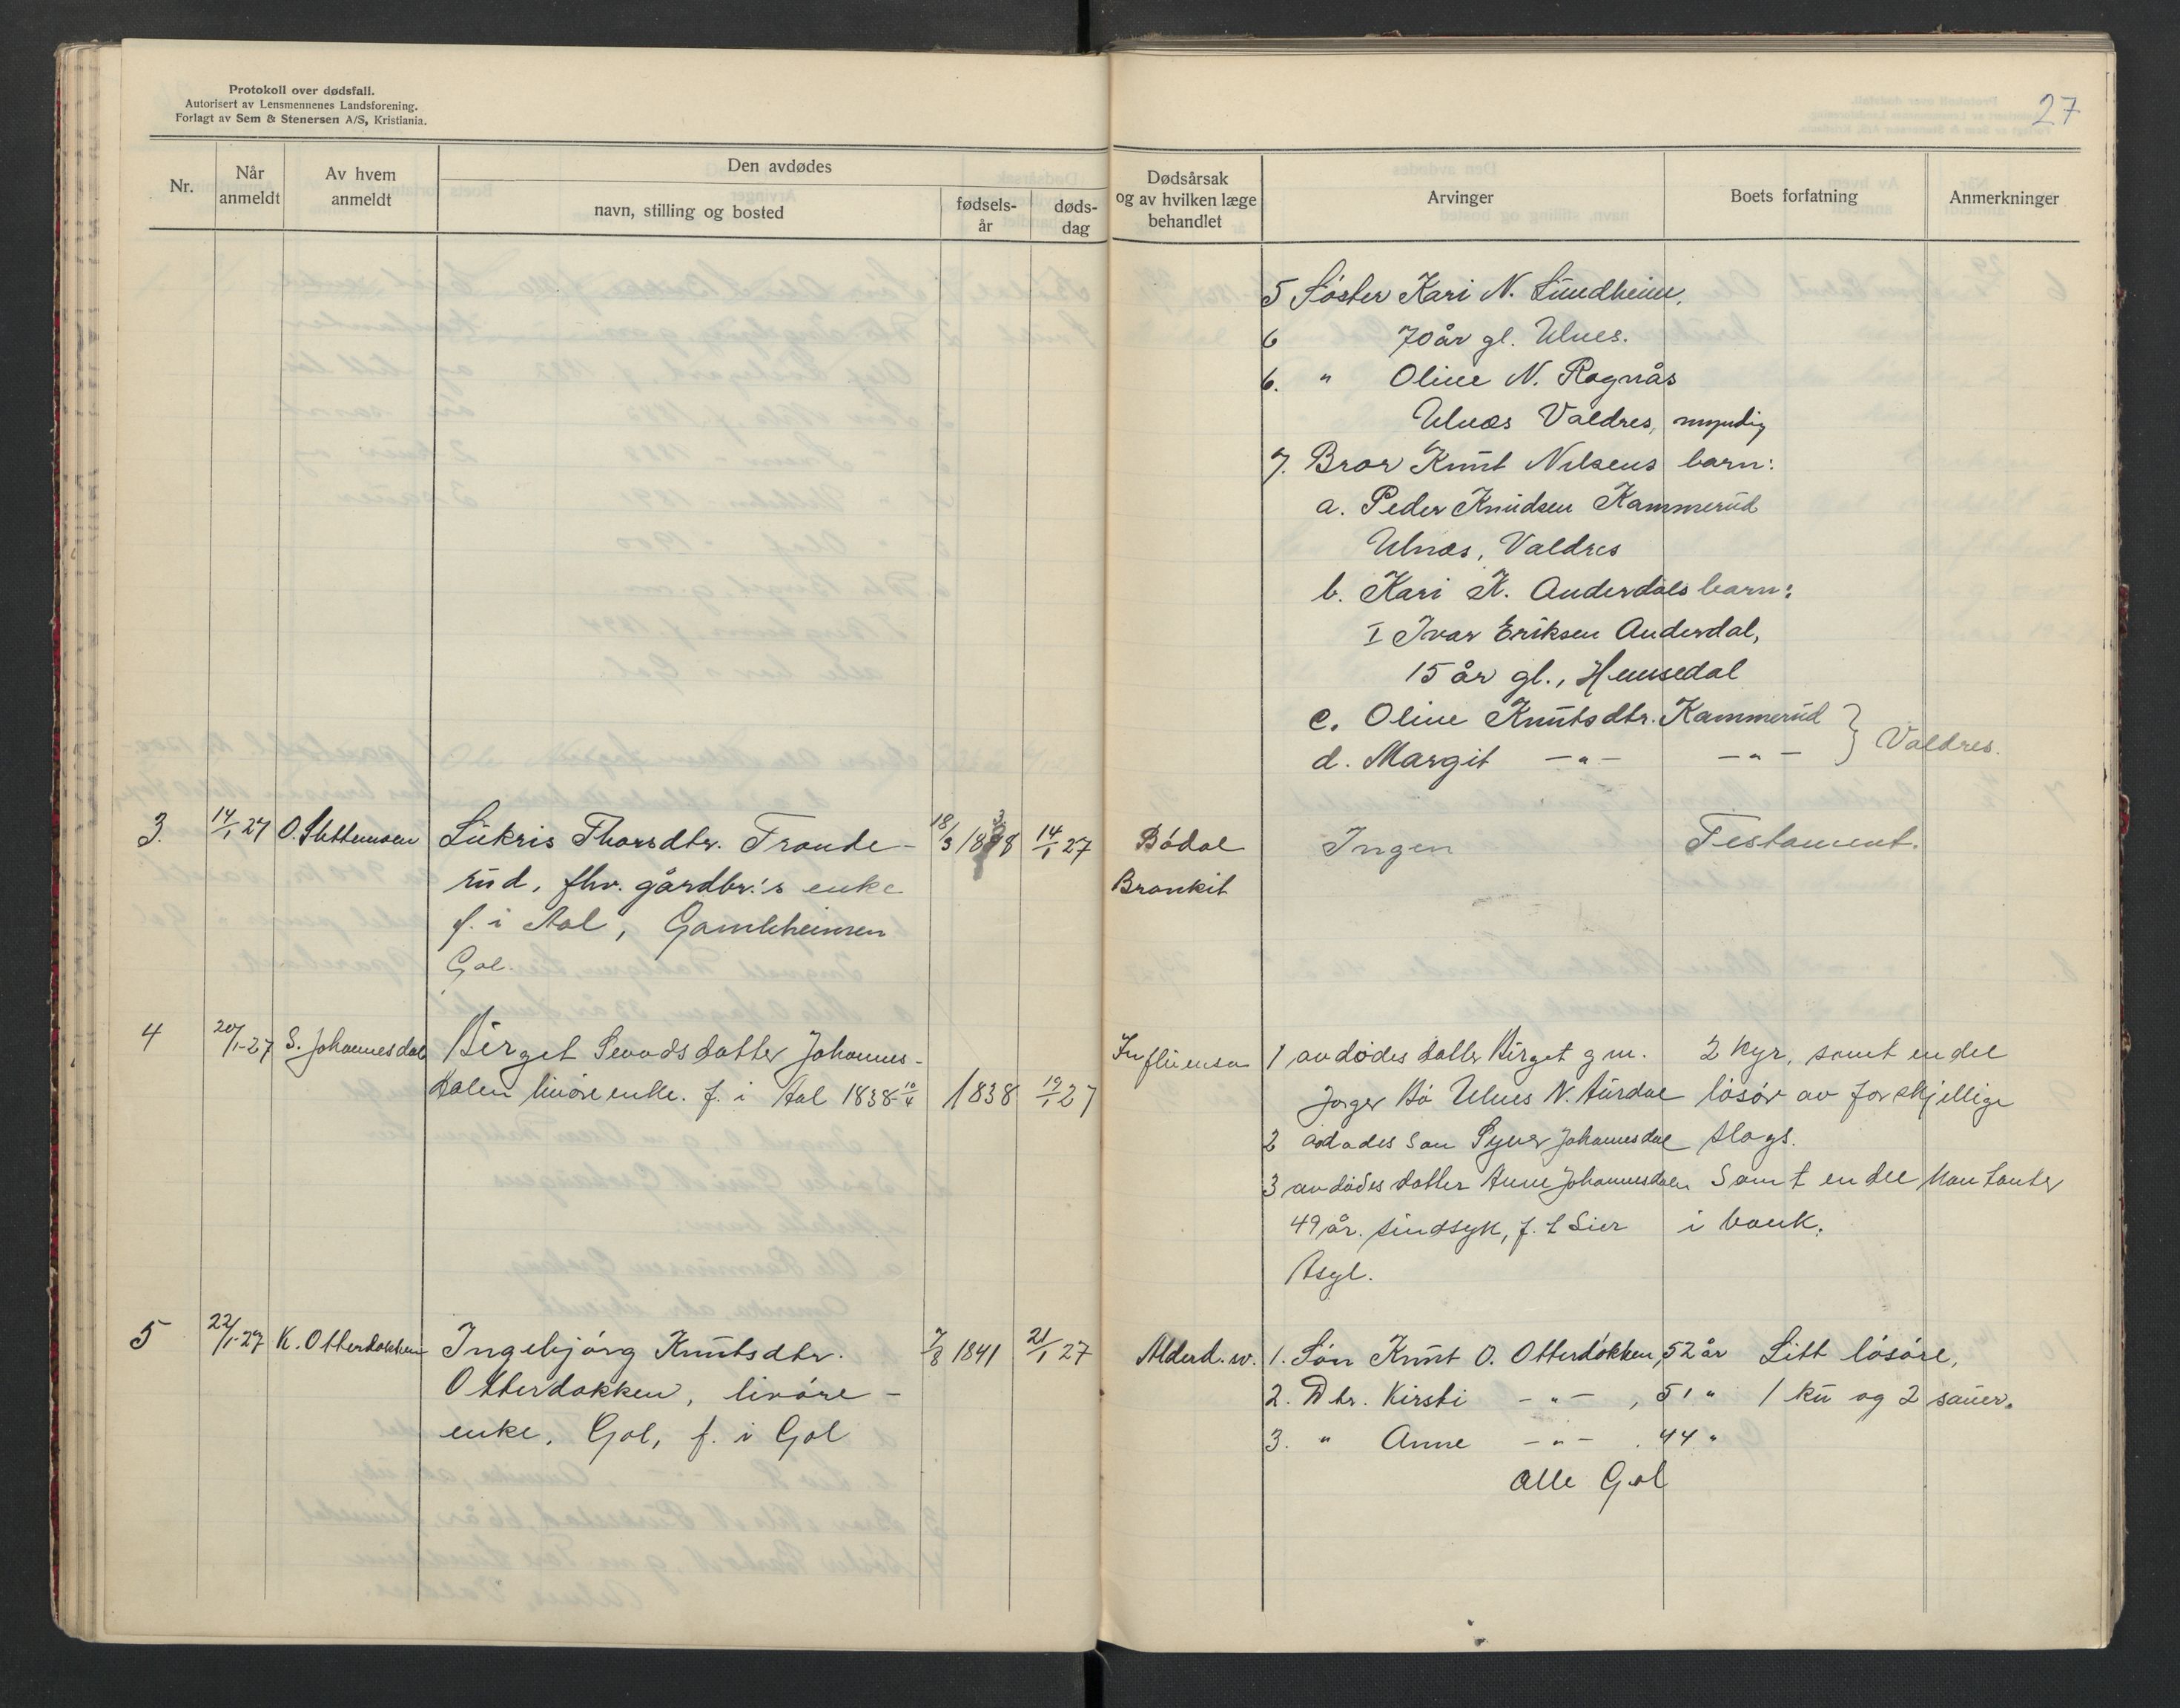 Protokoll over dødsfall.
Autorisert av Lensmennenes Landsforening.
Forlagt av Sem & Stenersen A/S, Kristiania.
27
Nr.
Når anmeldt
Av hvem anmeldt
Den avdødes
navn, stilling og bosted
fødsels-år
døds-dag
Dødsårsak og av hvilken læge behandlet
Arvinger
Boets forfatning
Anmerkninger
5 Søster Kari N. Sundheim,
6 70 år gl. Ulnes.
6. " Oline N. Rognås
Ulnæs Valdres, myndig
7. Bror Knut Nilsens barn:
a. Peder Knudsen Kammerud
Ulnæs, Valdres
b. Kari K. Anderdals barn:
I Ivar Eriksen Anderdal,
15 år gl., Hemsedal
c. Oline Knutsdtr. Kammerud
d. Margit —"— —"— } Valdres.
3. 14/1 27 O. Slettemoen Lukris Thorsdtr. Trande- 18/3 1838 14/1 27 Bådal Ingen Testament.
rud, fhv. gårdbr.'s enke Bronkit
f. i Aal, Gamleheimen
Gol.
4 20/1-27 S. Johannesdal Birget Sevadsdatter Johannes- Influensa 1 avdødes datter Birget gm. 2 kyr, samt endel
dalen livøreenke. f. i Aal 1838 10/4 1838 19/1 27 Jørger Bø Ulnes N. Aurdal løsør av forskjellige
2 avdødes søn Syver Johannesdal slags.
3 avdødes datter Anne Johannesdalen Samt en del kontanter
49 år. sindsyk, f. t Lier i bank.
Asyl.
5 22/1-27 K. Otterdokken Ingebjørg Knutsdtr. 7/8 1841 21/1 27 Alderd.sv. 1. Søn Knut O. Otterdokken, 52 år Litt løsøre,
Otterdokken, livøre- 2. Dtr. Kirsti —"—, 51 " 1 ku og 2 sauer.
enke, Gol, f. i Gol 3. " Anne —"—. 44 "
alle Gol